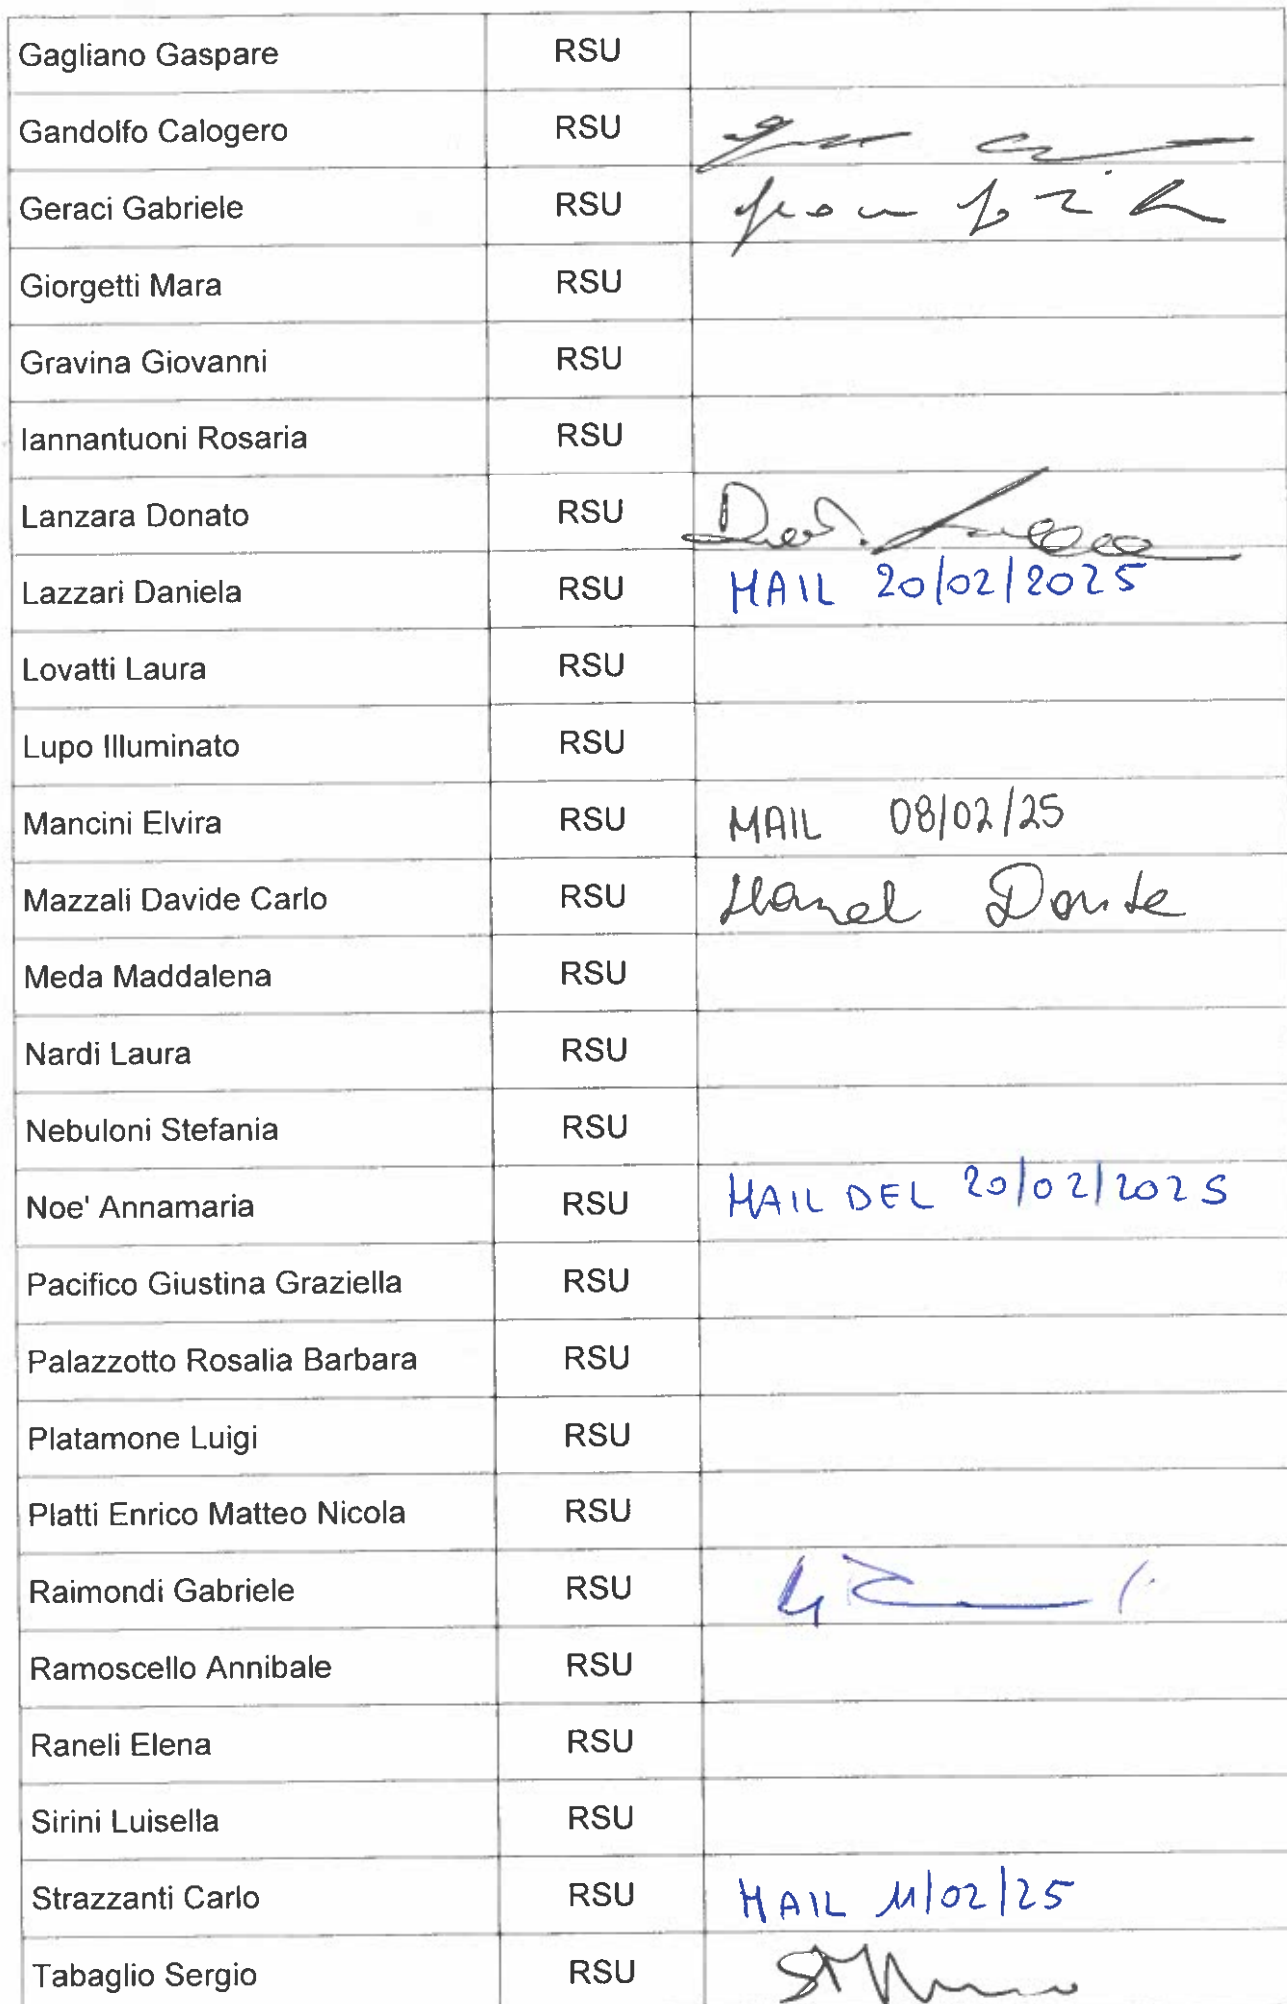 Gagliano Gaspare RSU
Gandolfo Calogero RSU
Geraci Gabriele RSU
Giorgetti Mara RSU
Gravina Giovanni RSU
Iannantuoni Rosaria RSU
Lanzara Donato RSU
Lazzari Daniela RSU MAIL 20/02/2025
Lovatti Laura RSU
Lupo Illuminato RSU
Mancini Elvira RSU MAIL 08/02/25
Mazzali Davide Carlo RSU
Meda Maddalena RSU
Nardi Laura RSU
Nebuloni Stefania RSU
Noe' Annamaria RSU MAIL DEL 20/02/2025
Pacifico Giustina Graziella RSU
Palazzotto Rosalia Barbara RSU
Platamone Luigi RSU
Platti Enrico Matteo Nicola RSU
Raimondi Gabriele RSU
Ramoscello Annibale RSU
Raneli Elena RSU
Sirini Luisella RSU
Strazzanti Carlo RSU MAIL 11/02/25
Tabaglio Sergio RSU